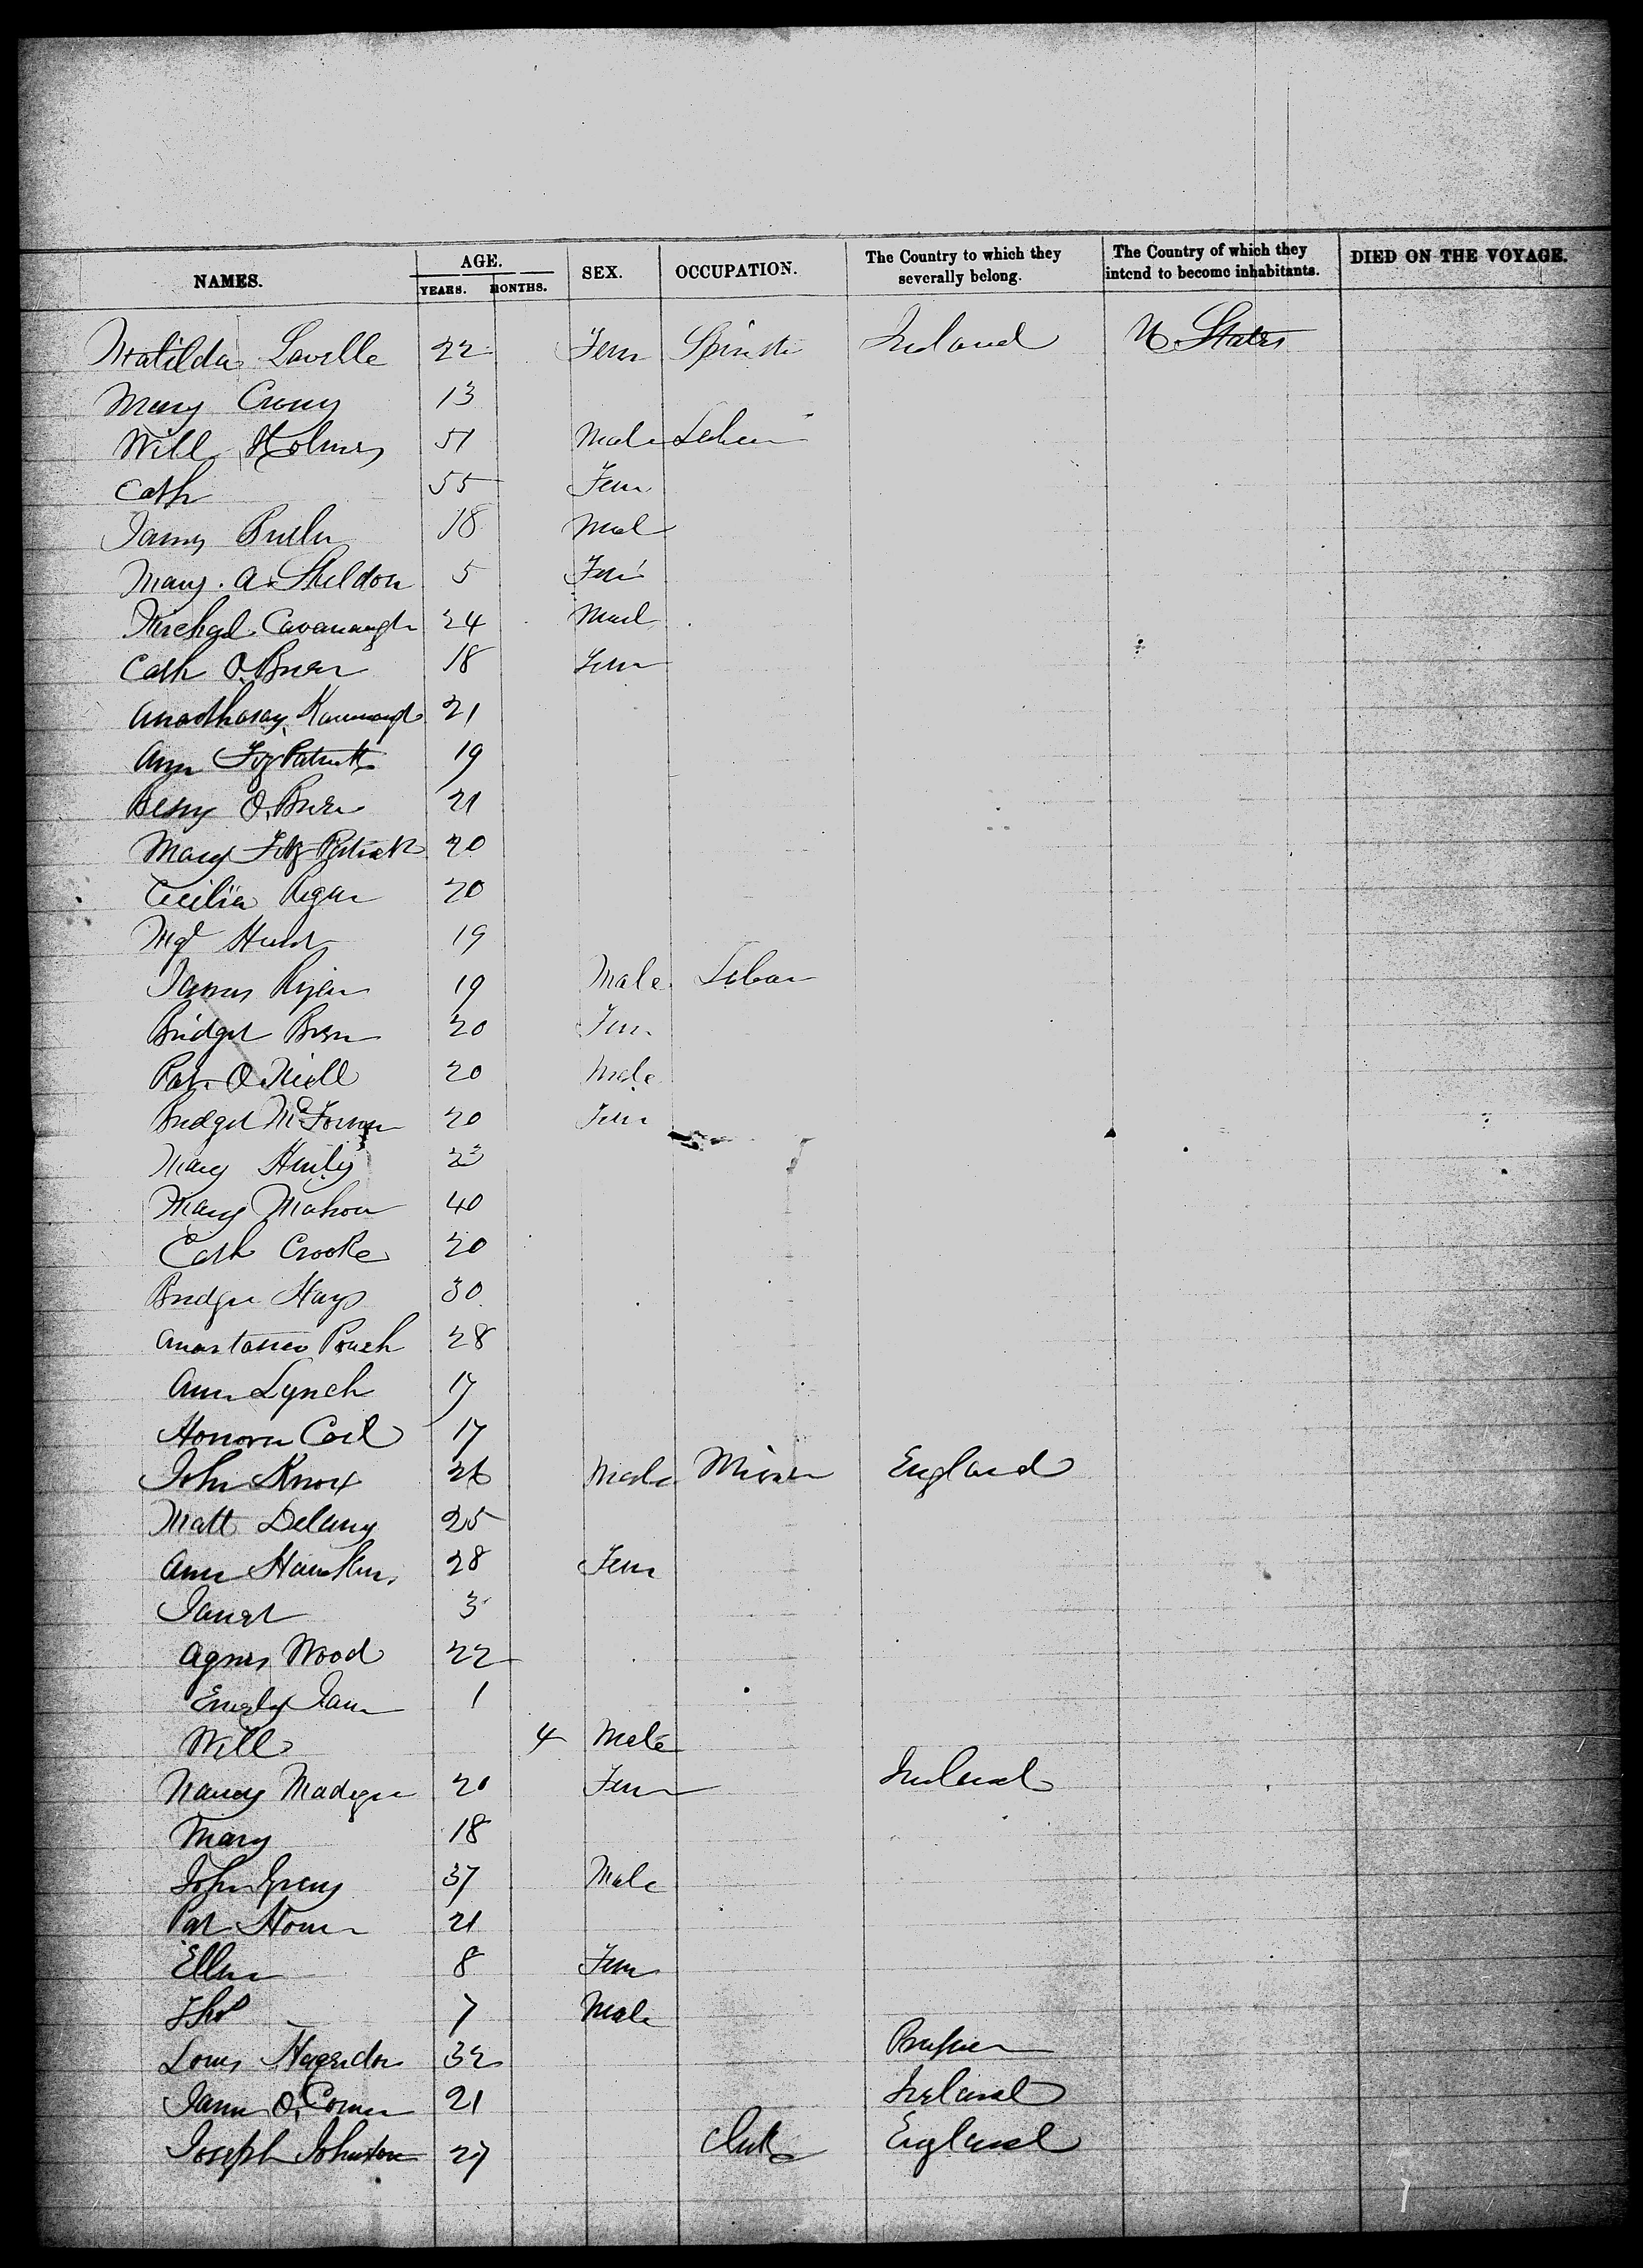 NAMES. AGE. YEARS. MONTHS. SEX. OCCUPATION. The Country to which they severally belong. The Country of which they intend to become inhabitants. DIED ON THE VOYAGE.
Matilda Laville 22 Fem Spinst Ireland U. States
Mary Crony 13
Will Holmes 51 Male Labou
Cath 55 Fem
James Butler 18 Mal
Mary. A. Sheldon 5 Fem
Michael Cavanaugh 24 Mal
Cath O.Brien 18 Fem
Kavanagh 21
Ann Fitz Patrick 19
Bessy O.Brien 21
Mary Fitz Patrick 20
Cecilia Regan 20
Mgt Hunt 19
James Ryan 19 Male Labour
Bridget 20 Fem
Pat. O Neill 20 Male
Bridget 20 Fem
Mary Henly 23
Mary Mahon 40
Cath Crooke 20
Bridget Hays 30
Anastasia 28
Ann Lynch 17
Honora 17
John Knox 26 Male Miner England
Matt Delany 25
Ann Hawkins 28 Fem
Janet 3
Agnes Wood 22
Emily Jane 1
Will 4 Male
Nancy Madigan 20 Fem Ireland
Mary 18
John Greny 37 Male
Pat 21
Ellen 8 Fem
Tho 7 Male
Louis Hagendon 32 Prussia
O,Conner 21 Ireland
Joseph Johnston 27 Clerk England